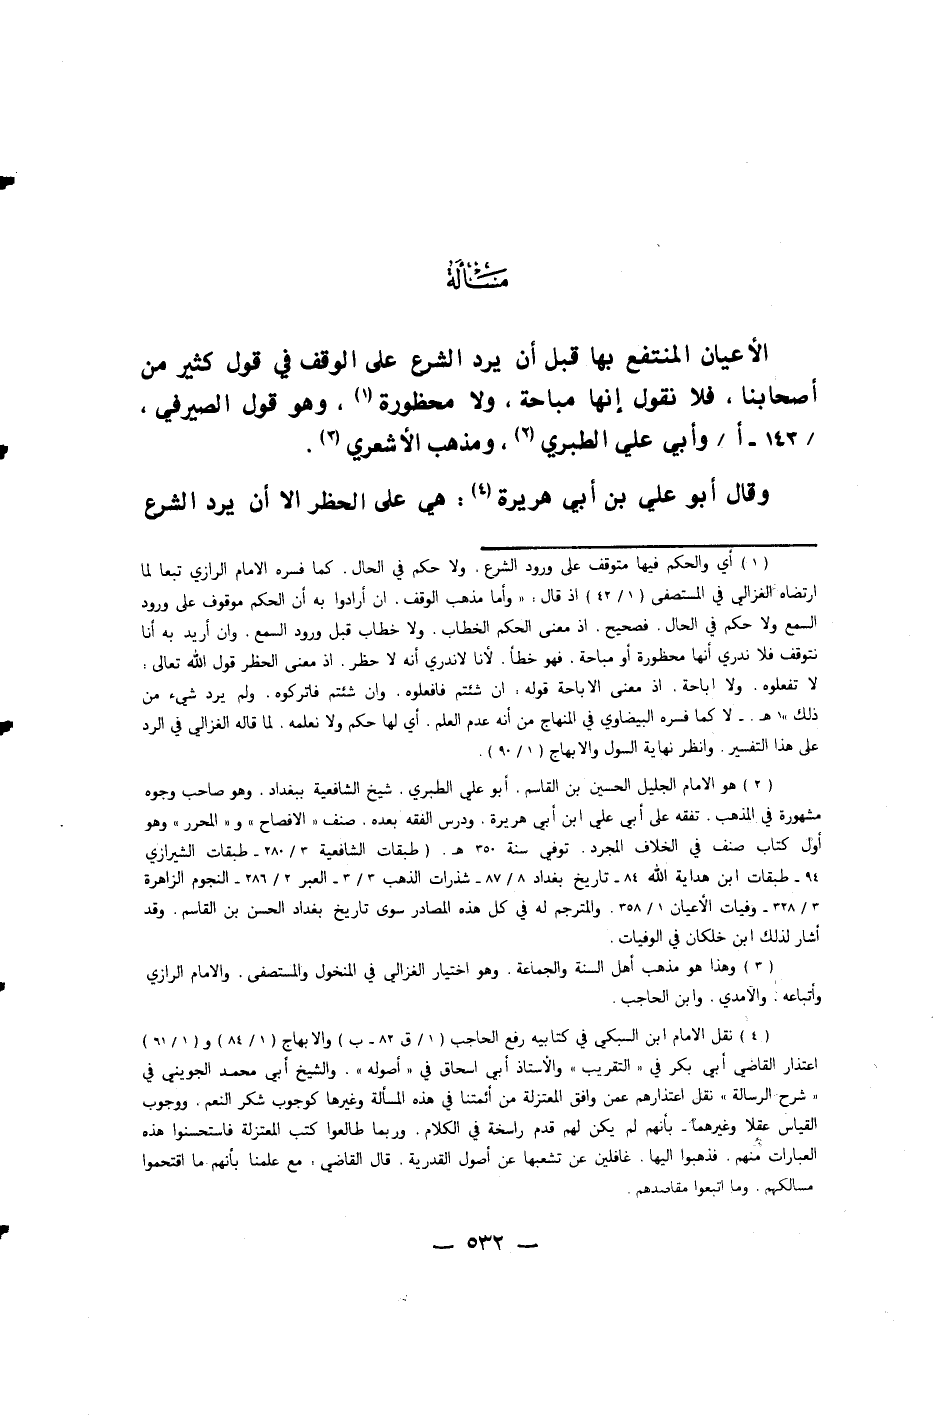 مَسْأَلَة
الأعيان المنتفع بها قبل أن يرد الشرع على الوقف في قول كثير من
أصحابنا ، فلا نقول إنها مباحة ، ولا محظورة (١) ، وهو قول الصيرفي ،
/ ١٤٣ ـ أ / وأبي علي الطبري (٢) ، ومذهب الأشعري (٣) .
وقال أبو علي بن أبي هريرة (٤) : هي على الحظر الا أن يرد الشرع
( ١ ) أي والحكم فيها متوقف على ورود الشرع . ولا حكم في الحال . كما فسره الامام الرازي تبعا لما
ارتضاه الغزالي في المستصفى ( ١ / ٤٢ ) اذ قال : « وأما مذهب الوقف . ان أرادوا به أن الحكم موقوف على ورود
السمع ولا حكم في الحال . فصحيح . اذ معنى الحكم الخطاب . ولا خطاب قبل ورود السمع . وان أريد به أنا
نتوقف فلا ندري أنها محظورة أو مباحة . فهو خطأ . لأنا لاندري أنه لا حظر . اذ معنى الحظر قول الله تعالى :
لا تفعلوه . ولا اباحة . اذ معنى الاباحة قوله : ان شئتم فافعلوه . وان شئتم فاتركوه . ولم يرد شيء من
ذلك » ١ هـ . ـ لا كما فسره البيضاوي في المنهاج من أنه عدم العلم . أي لها حكم ولا نعلمه . لما قاله الغزالي في الرد
على هذا التفسير . وانظر نهاية السول والابهاج ( ١ / ٩٠ ) .
( ٢ ) هو الامام الجليل الحسين بن القاسم . أبو علي الطبري . شيخ الشافعية ببغداد . وهو صاحب وجوه
مشهورة في المذهب . تفقه على أبي علي ابن أبي هريرة . ودرس الفقه بعده . صنف « الافصاح » و « المحرر » وهو
أول كتاب صنف في الخلاف المجرد . توفي سنة ٣٥٠ هـ . ( طبقات الشافعية ٣ / ٢٨٠ ـ طبقات الشيرازي
٩٤ ـ طبقات ابن هداية الله ٨٤ ـ تاريخ بغداد ٨ / ٨٧ ـ شذرات الذهب ٣ / ٣ ـ العبر ٢ / ٢٨٦ ـ النجوم الزاهرة
٣ / ٣٢٨ ـ وفيات الأعيان ١ / ٣٥٨ . والمترجم له في كل هذه المصادر سوى تاريخ بغداد الحسن بن القاسم . وقد
أشار لذلك ابن خلكان في الوفيات .
( ٣ ) وهذا هو مذهب أهل السنة والجماعة . وهو اختيار الغزالي في المنخول والمستصفى . والامام الرازي
وأتباعه . والآمدي . وابن الحاجب .
( ٤ ) نقل الامام ابن السبكي في كتابيه رفع الحاجب ( ١ / ق ٨٢ ـ ب ) والابهاج ( ١ / ٨٤ ) و ( ١ / ٦١ )
اعتذار القاضي أبي بكر في « التقريب » والأستاذ أبي اسحاق في « أصوله » . والشيخ أبي محمد الجويني في
« شرح الرسالة » نقل اعتذارهم عمن وافق المعتزلة من أئمتنا في هذه المسألة وغيرها كوجوب شكر النعم . ووجوب
القياس عقلا وغيرهما ـ بأنهم لم يكن لهم قدم راسخة في الكلام . وربما طالعوا كتب المعتزلة فاستحسنوا هذه
العبارات منهم . فذهبوا اليها . غافلين عن تشعبها عن أصول القدرية . قال القاضي : مع علمنا بأنهم ما اقتحموا
مسالكهم . وما اتبعوا مقاصدهم .
ـ ٥٣٢ ـ